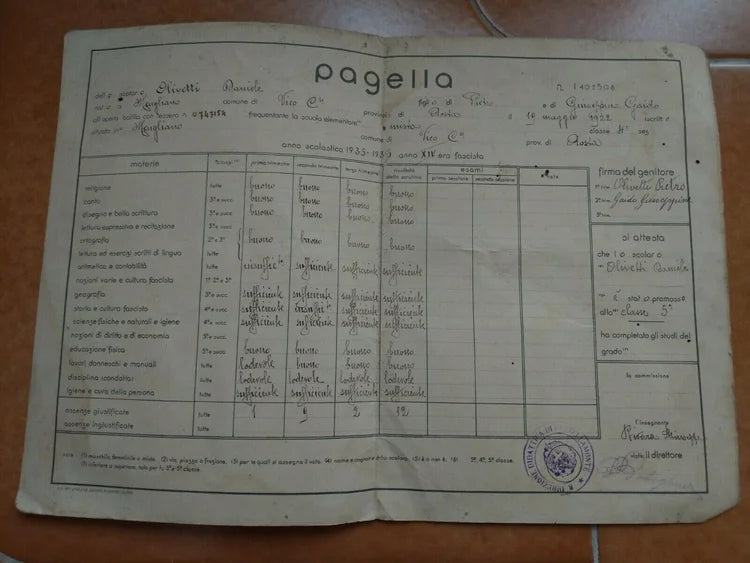 pagella
N. 1401506
dell o scolar o Olivetti Daniele figlio di Pietro e di Giuseppina Gaido
nat o a Meugliano comune di Vico C.se provincia di Aosta il 19 maggio 1922 iscritt o
all'opera balilla con tessera n. 0747154 frequentante la scuola elementare mista classe 4ª sez
situata in Meugliano comune di Vico C.se prov. di Aosta
anno scolastico 1935-193 anno XIV era fascista
materie classi primo trimestre secondo trimestre terzo trimestre risultato dello scrutinio esami prima sessione seconda sessione note
religione tutte buono buono buono buono
canto 3ª e succ. buono buono buono buono
disegno e bella scrittura tutte buono buono buono buono
lettura espressiva e recitazione 3ª e succ.
ortografia 2ª e 3ª buono buono buono buono
lettura ed esercizi scritti di lingua tutte
aritmetica e contabilità tutte insuffic.te sufficiente sufficiente sufficiente
nozioni varie e cultura fascista 1ª 2ª e 3ª
geografia 3ª e succ. sufficiente sufficiente sufficiente sufficiente
storia e cultura fascista 4ª e succ. sufficiente sufficiente sufficiente
scienze fisiche e naturali e igiene 4ª e succ. sufficiente sufficiente sufficiente sufficiente
nozioni di diritto e di economia 5ª e succ.
educazione fisica tutte buono buono buono buono
lavori donneschi e manuali tutte lodevole buono buono buono
disciplina (condotta) tutte lodevole lodevole lodevole lodevole
igiene e cura della persona tutte sufficiente sufficiente sufficiente sufficiente
assenze giustificate tutte 1 9 2 12
assenze ingiustificate tutte
firma del genitore
1º trim. Olivetti Pietro
2º trim. Gaido Giuseppina
3º trim.
si attesta
che l o scolar o
Olivetti Daniele
è stat o promoss o
alla classe 5ª
ha completato gli studi del
grado
la commissione
l'insegnante
visto: il direttore
note (1) maschile, femminile o mista. (2) via, piazza o frazione. (3) per le quali si assegna il voto. (4) nome e cognome dello scolaro. (5) è o non è. (6) 3ª, 4ª, 5ª classe.
(7) inferiore o superiore, solo per la 3ª e 5ª classe.